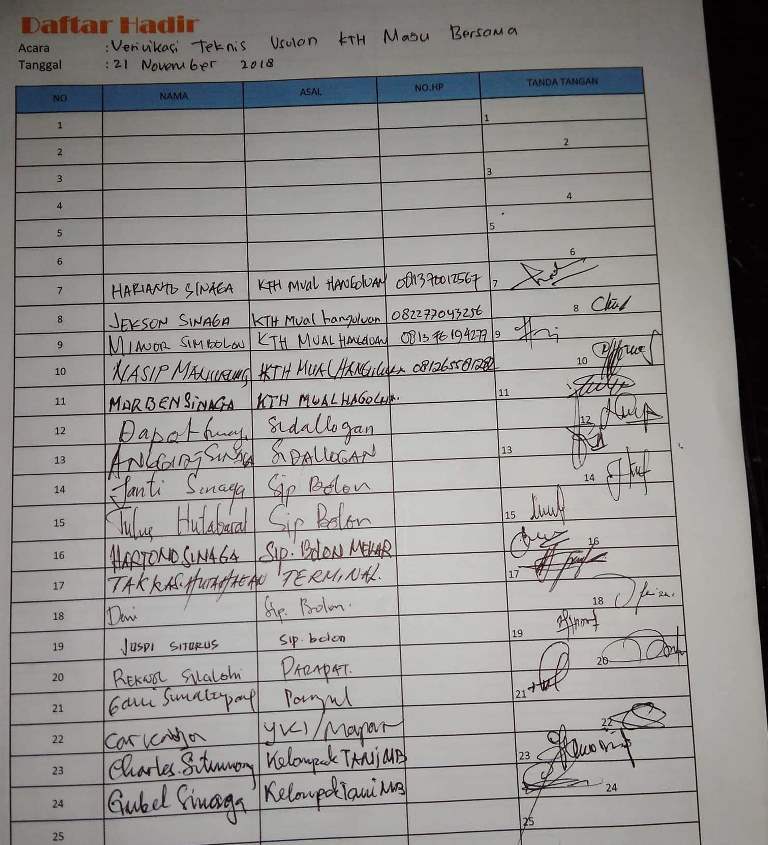 Daftar Hadir
Acara : Verivikasi Teknis Usulan KTH Maju Bersama
Tanggal : 21 November 2018
NO NAMA ASAL NO.HP TANDA TANGAN
1 1
2 2
3 3
4 4
5 5
6 6
7 HARIANTO SINAGA KTH MUAL HANGOLUAN 081370012567 7
8 JEKSON SINAGA KTH Mual hangoluan 082277043256 8
9 SIMBOLON KTH MUAL HANGOLUAN 081376194277 9
10 NASIP KTH MUAL 10
11 MARBEN SINAGA KTH MUAL HAGOLUAN. 11
12 Dapot Sidallogan 12
13 SINAGA SIDALLOGAN 13
14 Janti Sinaga Sip Bolon 14
15 Tulus Hutabarat Sip Bolon 15
16 HARTONO SINAGA Sip. BOLON MEKAR 16
17 TAKKAS. HUTAHAEAN TERMINAL. 17
18 Deni Sip. Bolon. 18
19 JUSPI SITORUS Sip. bolon 19
20 Silalahi PARAPAT. 20
21 21
22 YKI/ 22
23 Charles. Kelompok TANI MB 23
24 Gubel Sinaga Kelompok Tani MB 24
25 25